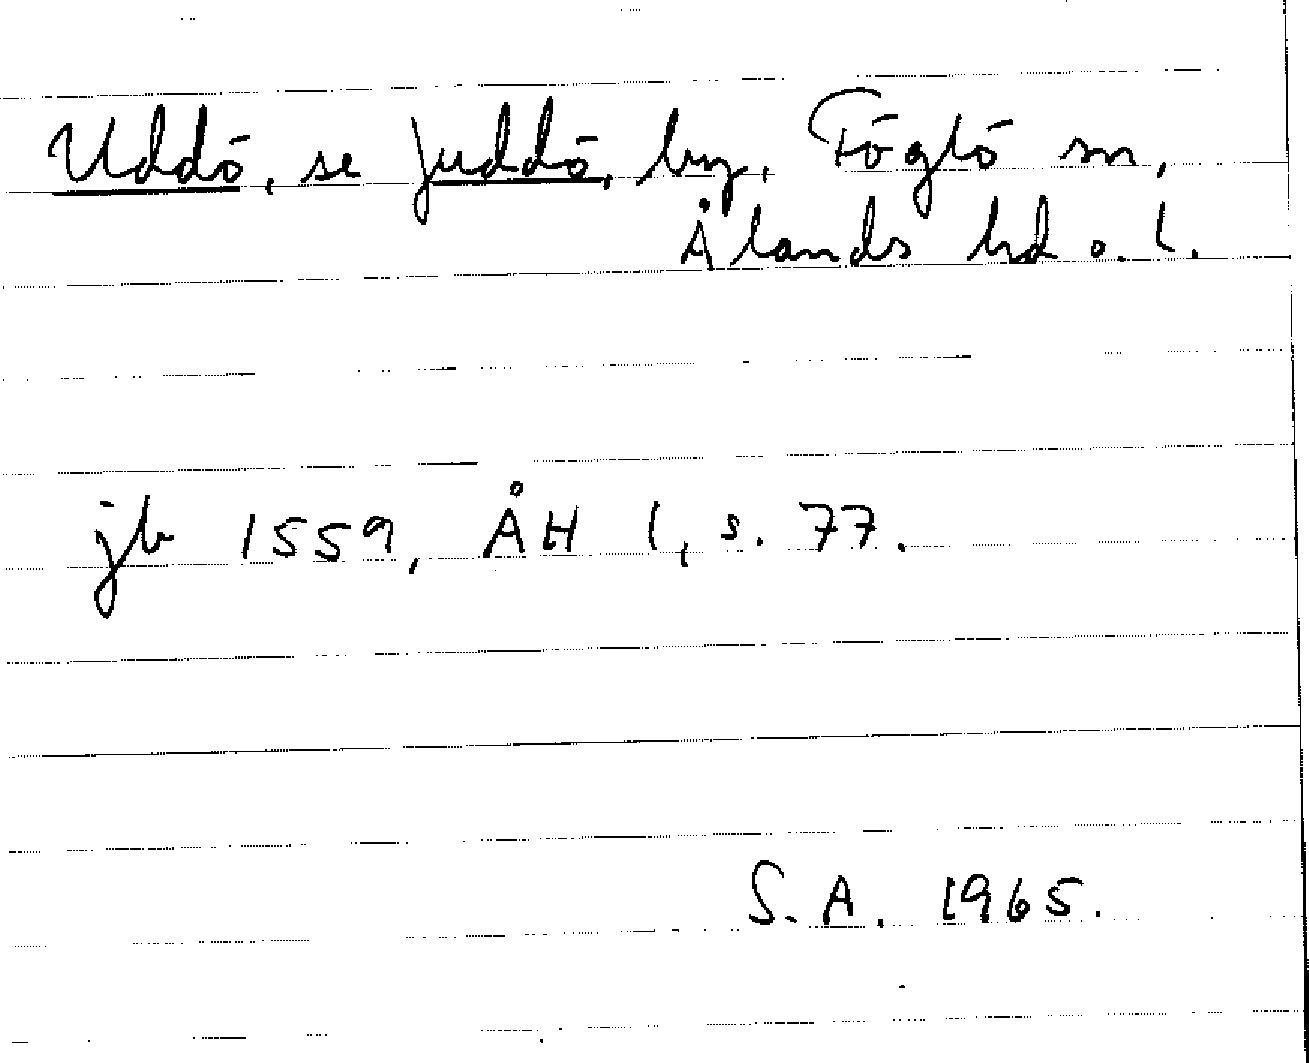 Uddö, se Juddö, by, Föglö sn,
Ålands hd o. l.
jb 1559, ÅH 1, s. 77.
S. A. 1965.